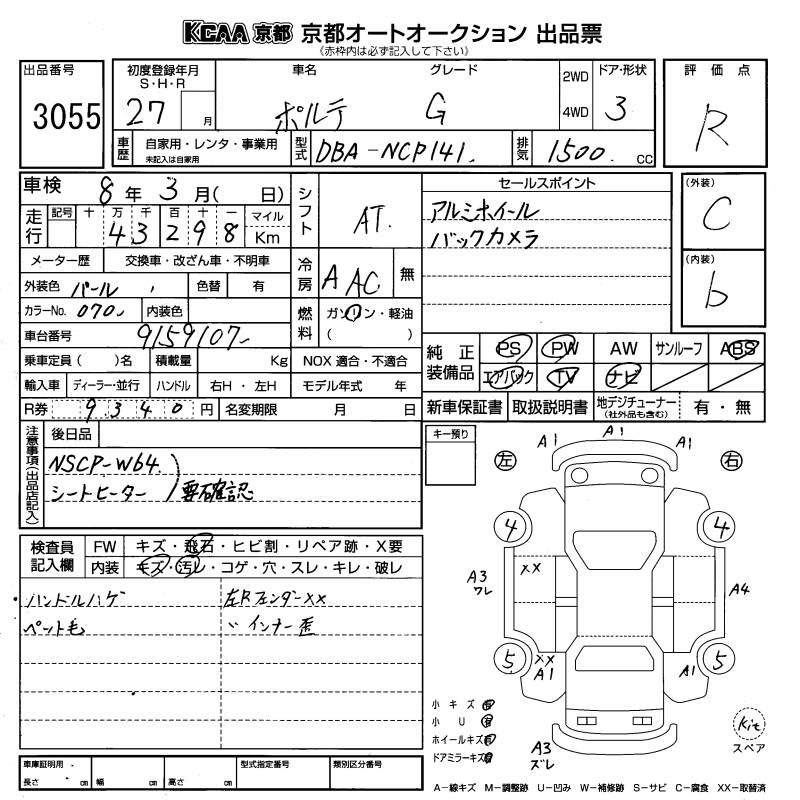 KCAA 京都 京都オートオークション 出品票
《赤枠内は必ず記入して下さい》
出品番号
3055
初度登録年月
S・H・R
27 月
車名 グレード
ポルテ G
2WD
4WD
ドア・形状
3
評価点
R
車歴
自家用・レンタ・事業用
未記入は自家用
型式
DBA-NCP141.
排気
1500. CC
車検 8年 3月( 日)
走行
記号 十 万 千 百 十 一 マイル
4 3 2 9 8 Km
メーター歴 交換車・改ざん車・不明車
外装色 パール 色替 有
カラーNo. 070 内装色
車台番号 9159107
乗車定員( )名 積載量 Kg
輸入車 ディーラー・並行 ハンドル 右H・左H
R券 9340円 名変期限 月 日
シフト AT.
冷房 A AC 無
燃料 ガソリン・軽油
( )
NOX 適合・不適合
モデル年式 年
セールスポイント
アルミホイール
バックカメラ
(外装)
C
(内装)
b
純正装備品
PS PW AW サンルーフ ABS
エアバック TV ナビ
新車保証書 取扱説明書 地デジチューナー (社外品も含む) 有・無
注意事項(出品店記入)
後日品
NSCP-W64.
シートヒーター 要確認
キー預り
検査員記入欄
FW キズ・飛石・ヒビ割・リペア跡・X要
内装 キズ・汚レ・コゲ・穴・スレ・キレ・破レ
・ハンドルハゲ
ペット毛
左Rフェンダーxx
〃 インナー歪
左 右
A1 A1 A1
4 4
xx
A3
ワレ
A4
5 5
xx
A1
A1
A3
ズレ
Kit
スペア
小キズ 有
小U 有
ホイールキズ 有
ドアミラーキズ 有
車庫証明用
長さ cm 幅 cm 高さ cm
型式指定番号 類別区分番号
A−線キズ M−調整跡 U−凹み W−補修跡 S−サビ C−腐食 XX−取替済